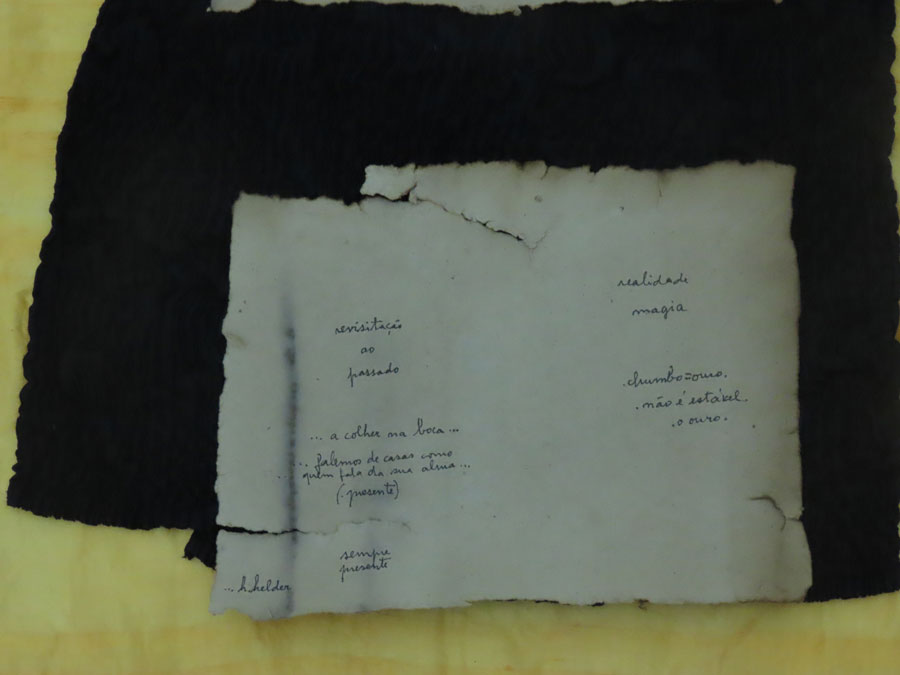 revisitação
ao
passado
... a colher na boca ...
... falemos de casas como
quem fala da sua alma ...
(.presente)
sempre
presente
... h.helder
realidade
magia
.chumbo=ouro.
.não é estável.
.o ouro.